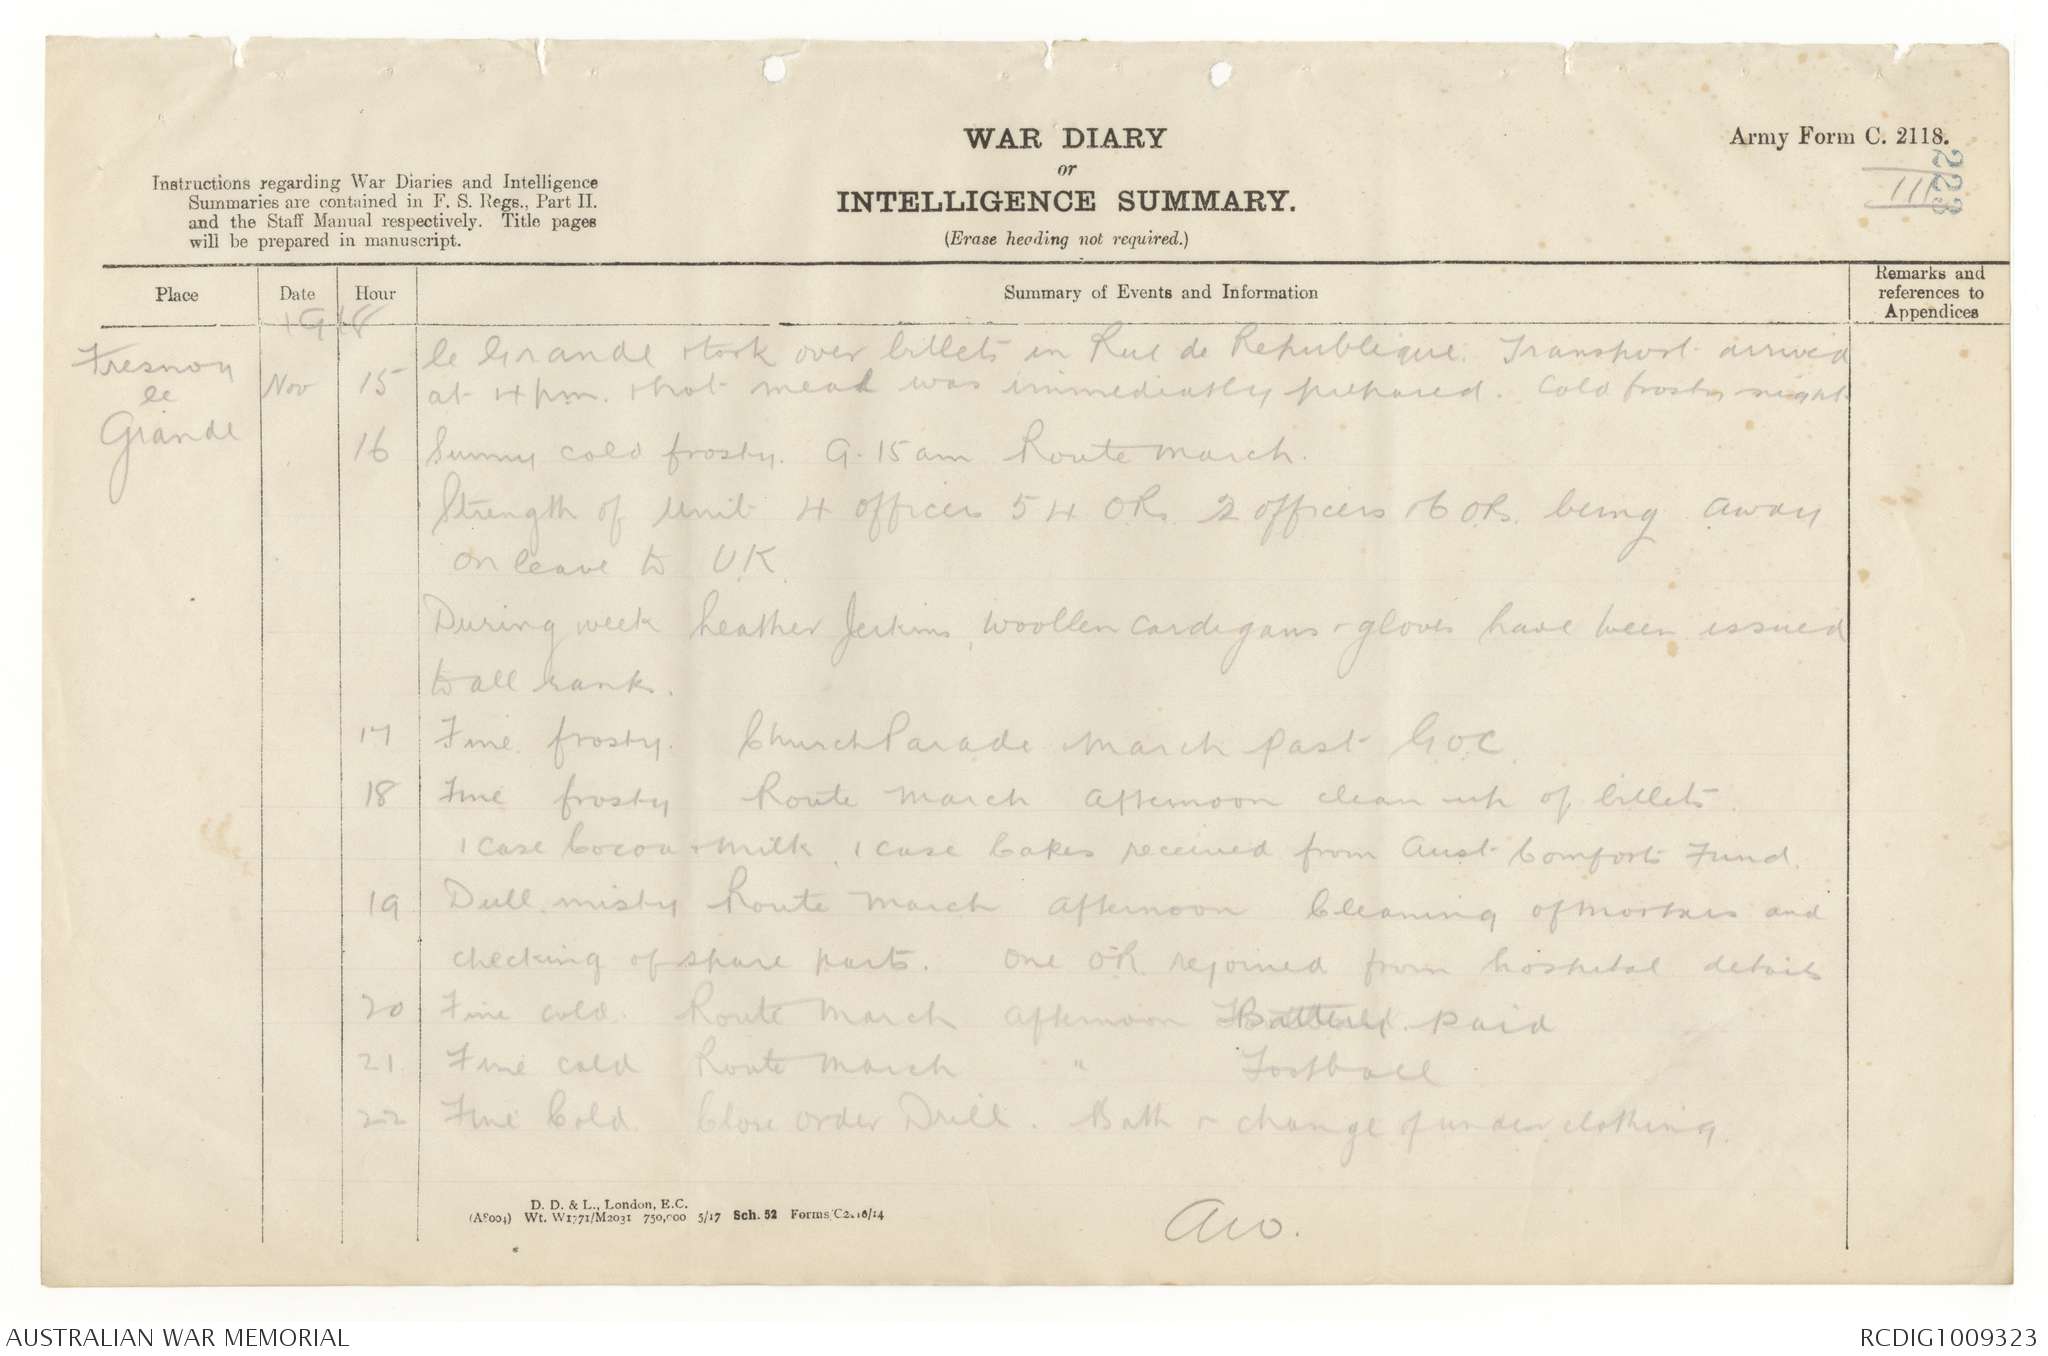 WAR DIARY
or
INTELLIGENCE SUMMARY.
(Erase heading not required.)
Army Form C. 2118.
223
III
Instructions regarding War Diaries and Intelligence
Summaries are contained in F. S. Regs., Part II.
and the Staff Manual respectively. Title pages
will be prepared in manuscript.
Place Date Hour Summary of Events and Information Remarks and references to Appendices
1918
Fresnoy le Grande
le Grande & took over billets in Rue de Republique. Transport arrived
Nov 15 at 4 pm. & hot meal was immediatly prepared. Cold frosty night
16 Sunny cold frosty. 9.15 am Route March.
Strength of Unit 4 officers 54 ORs. 2 officers & 6 ORs. being away
on leave to U.K.
During week leather Jerkins, woollen cardigans & gloves have been issued
to all ranks.
17 Fine. frosty. Church Parade March past GOC
18 Fine frosty Route March afternoon clean up of billets.
1 case Cocoa & Milk, 1 case Cakes received from Aust Comforts Fund.
19 Dull. misty Route March afternoon Cleaning of mortars and
checking of spare parts. One OR. rejoined from hospital details
20 Fine cold. Route March afternoon Battery paid
21 Fine cold Route March " Football
22 Fine Cold. Close order Drill. Bath & change of under clothing.
D. D. & L., London, E.C.
(A8004) Wt. W1771/M2031 750,000 5/17 Sch. 52 Forms/C2118/14
AUSTRALIAN WAR MEMORIAL
RCDIG1009323